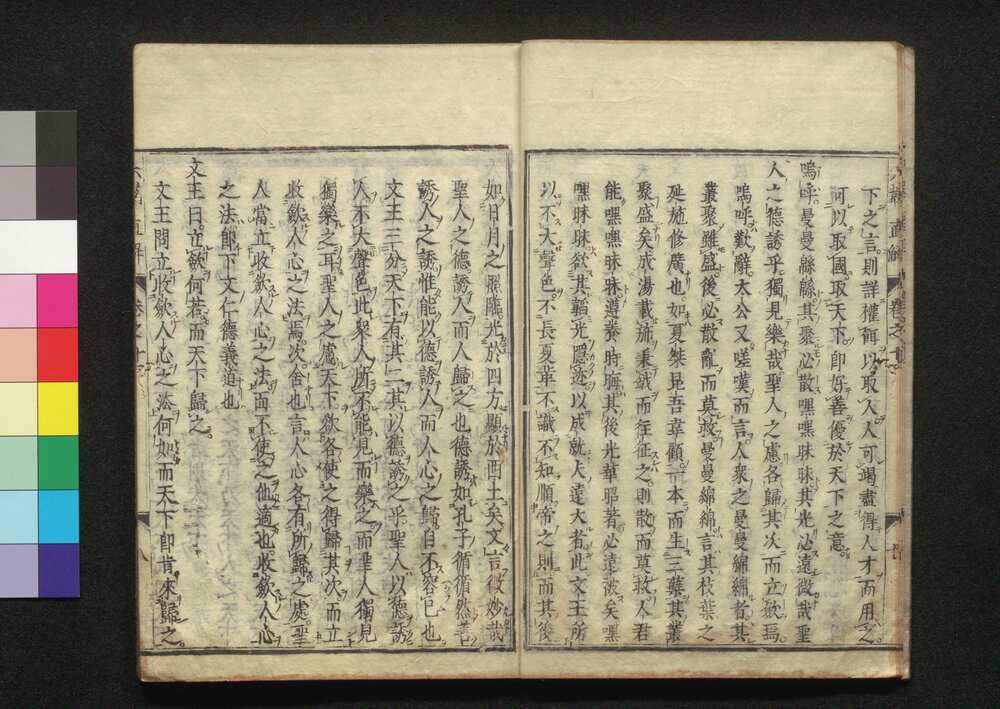 下之言則詳權餌以取人人可竭盡得人才而用之
可以取國取天下卽好善優於天下之意
嗚呼曼曼緜緜其聚必散嘿嘿昧昧其光必遠微哉聖
人之德誘乎獨見樂哉聖人之慮各歸其次而立斂焉
嗚呼歎辭太公又嗟嘆而言人衆之曼曼綿綿者其
叢聚雖盛後必散亂而莫救曼曼綿綿言其枝葉之
延施修廣也如夏桀昆吾韋顧一本而生三蘖其叢
聚盛矣成湯載旆秉鉞而往征之則散而莫救人君
能嘿嘿昧昧遵養時晦其後光華昭著必遠被矣嘿
嘿昧昧欲其韜光隱迹以成就大遠大者此文王所
以不大聲色不長夏革不識不知順帝之則而其後
如日月之照臨光於四方顯於西土矣文言微妙哉
聖人之德誘人而人歸之也德誘如孔子循循然善
誘人之誘惟能以德誘人而人心之歸自不容已也
文王三分天下有其二其以德誘之乎聖人以德誘
人不大聲色此衆人所不能見而樂之而聖人獨見
獨樂之耳聖人之慮天下欲各使之得歸其次而立
收斂人心之法焉次舍也言人心各有所歸之處聖
人當立收斂人心之法而不使之他適也收斂人心
之法卽下文仁德義道也
文王曰立斂何若而天下歸之
文王問立收斂人心之法何如而天下卽肯來歸之
六韜直解 卷之十 八